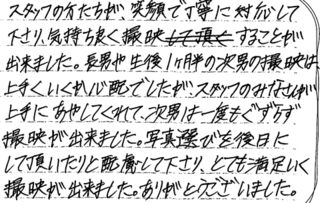 スタッフの方たちが、笑顔で丁寧に対応して
下さり、気持ち良く撮映することが
出来ました。長男や生後1ヶ月半の次男の撮映は、
上手くいくか心配でしたが、スタッフのみなさんが
上手にあやしてくれて、次男は一度もぐずらず
撮映が出来ました。写真選びを後日に
して頂いたりと配慮して下さり、とても満足いく
撮映が出来ました。ありがとうございました。